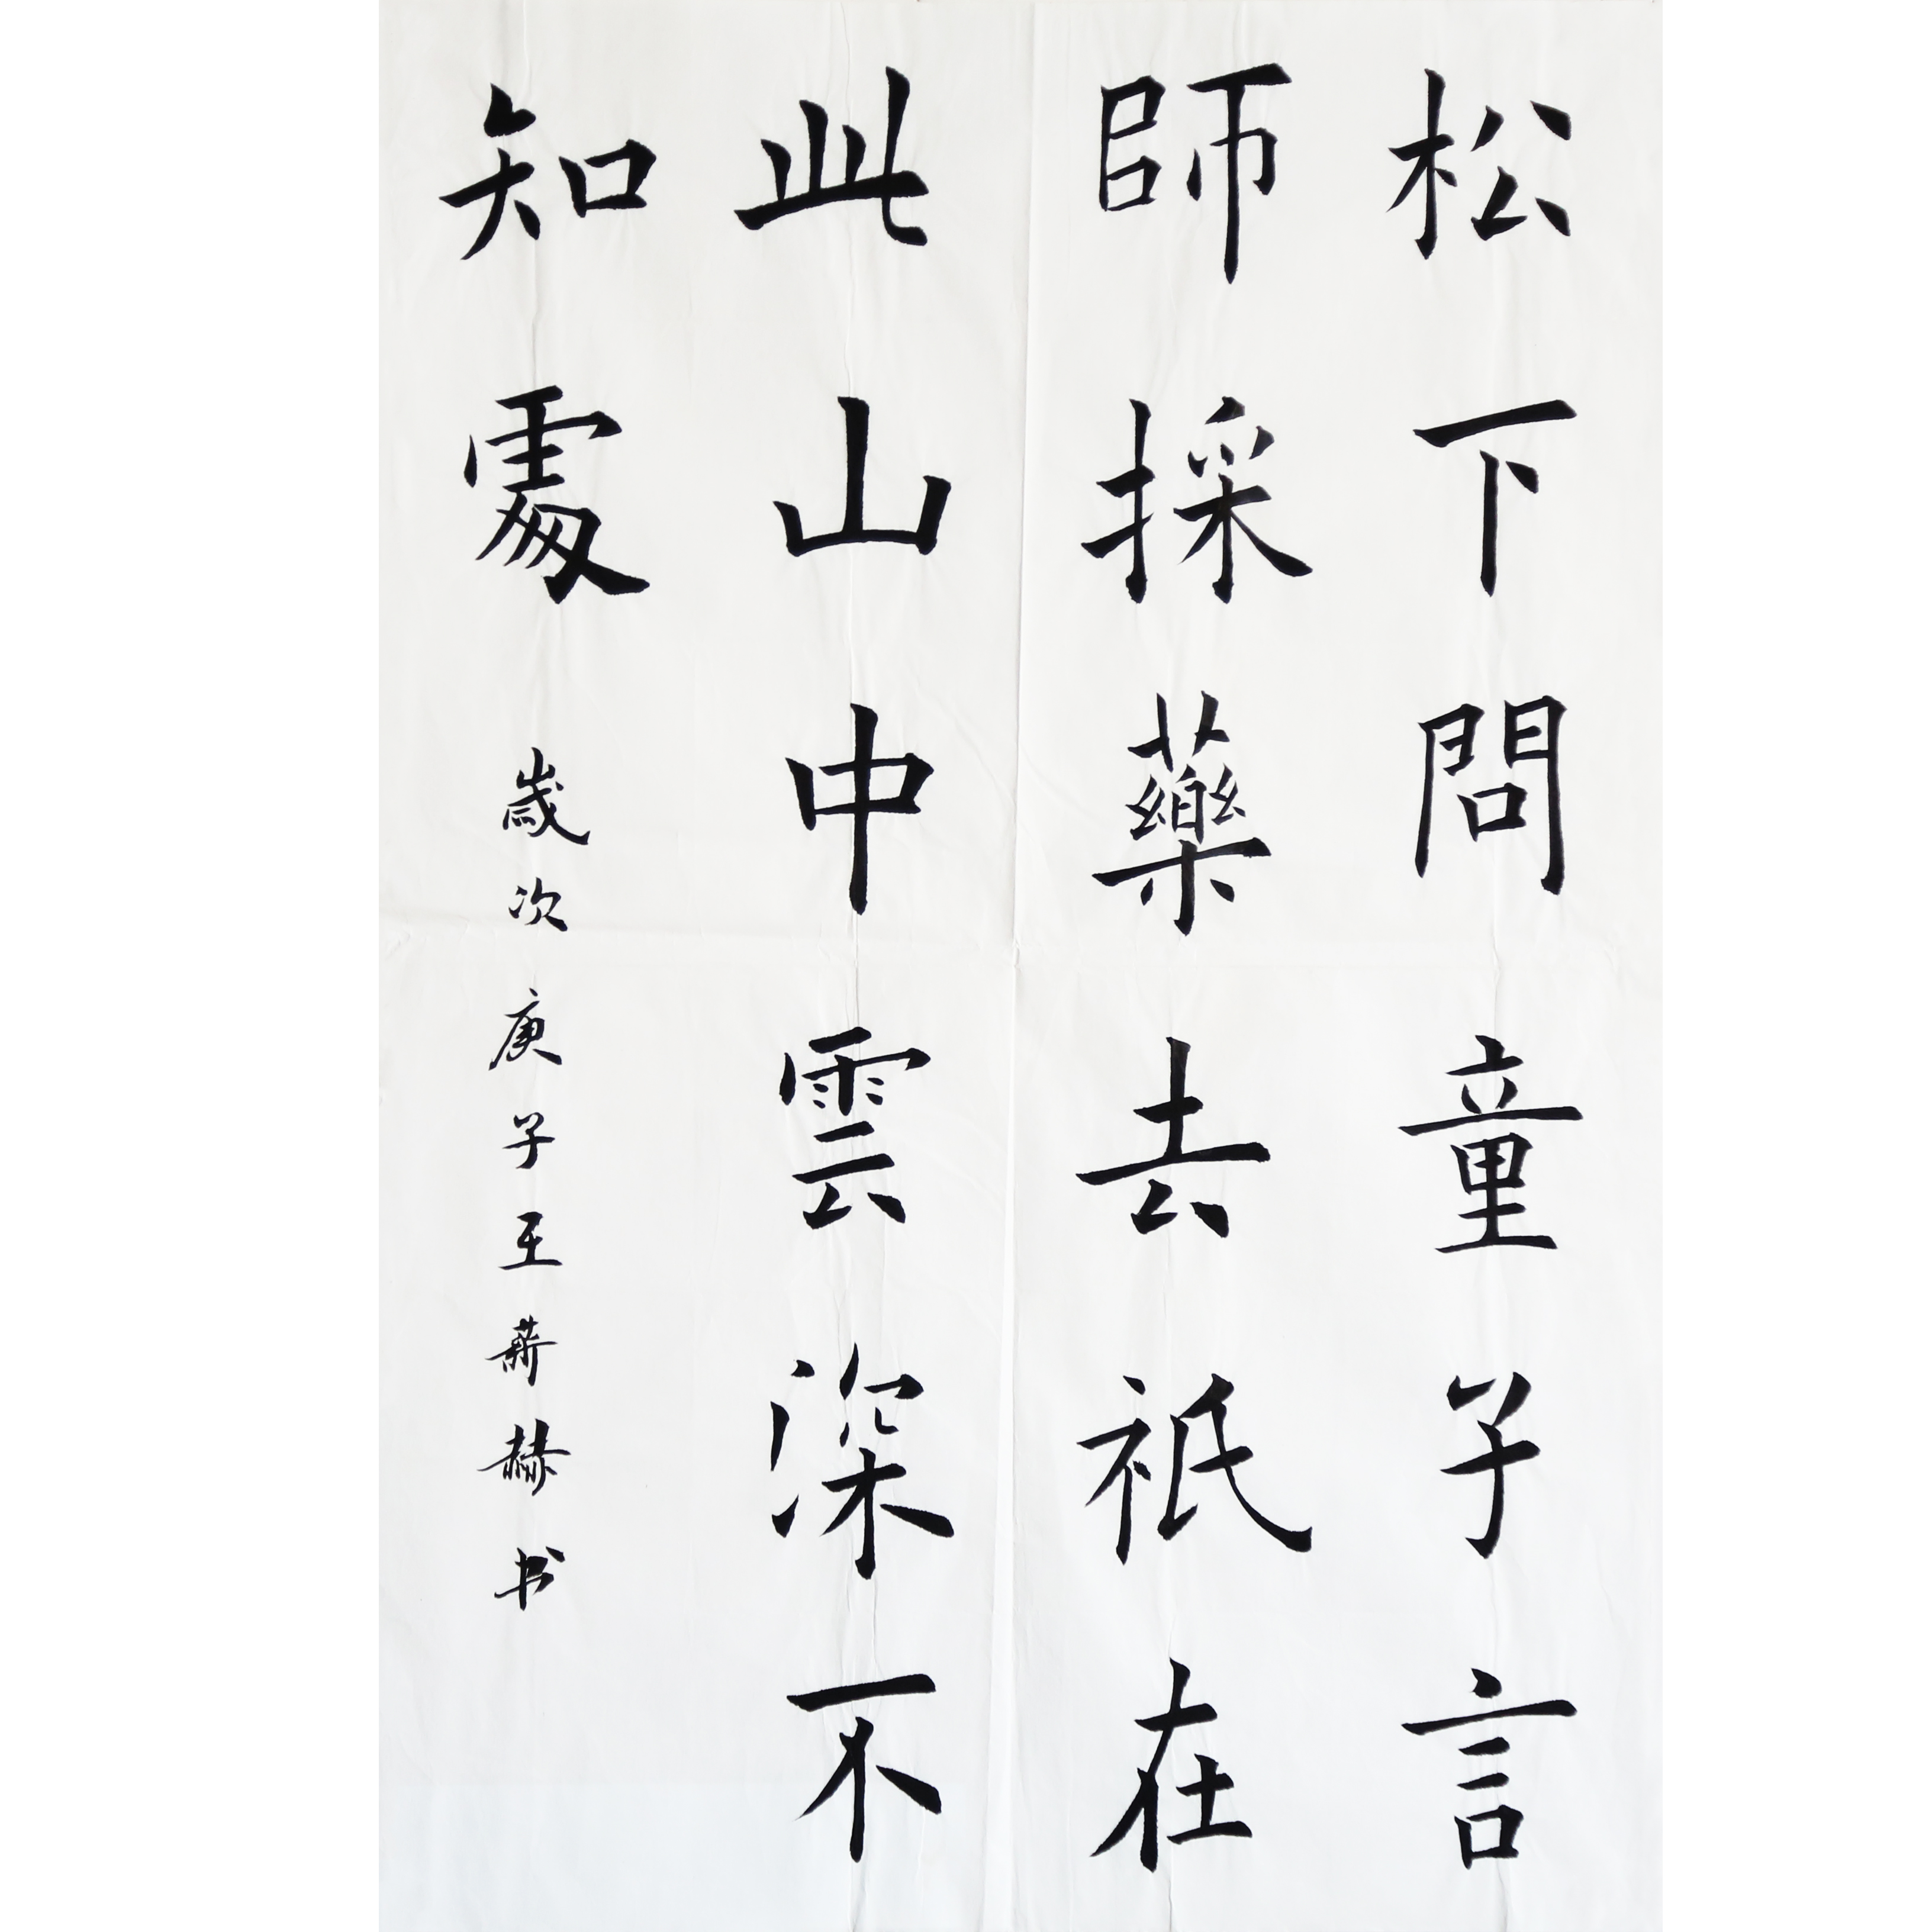 松下問童子言
師採藥去祇在
此山中雲深不
知處 歲次庚子王薪赫书